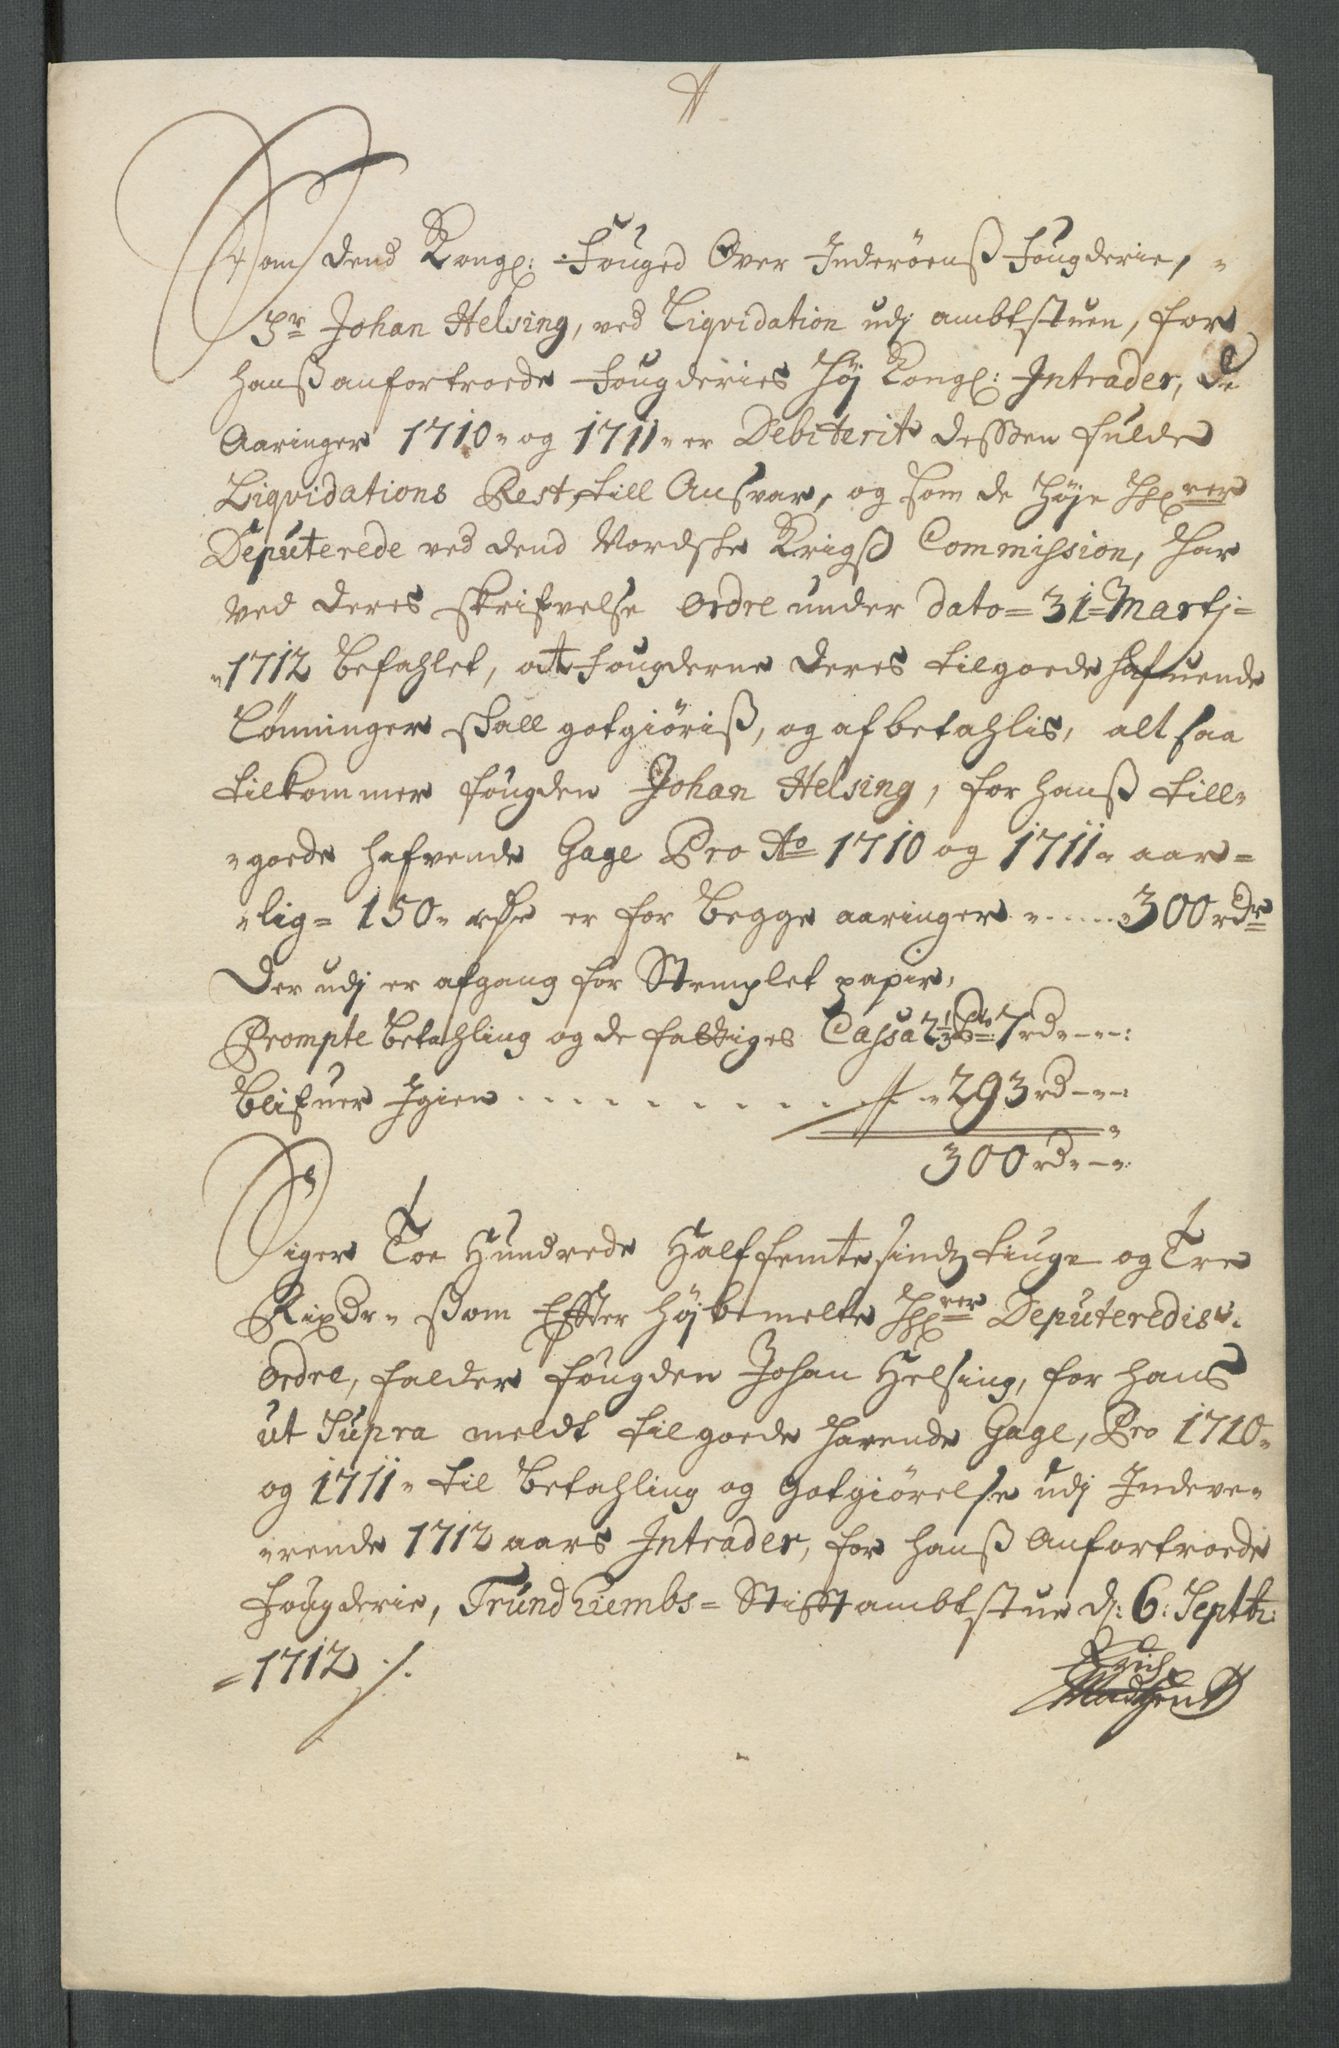 Som dend Kongl: Fouged Over Inderöens Fougderie, -
Sr Johan Helsing, ved Liqvidation udj ambtstuen, for
hanß anfortroede Fougderies Høj Kongl: Intrader, de
Aaringer 1710 - og 1711 - er Debiterit dessen fulde
Liqvidations Rest, till Ansvar, og som de Høje Herrer
Deputerede ved dend Nordske Krigß Commission, har
ved deres skrifvelse ordre under dato = 31 = Martj =
- 1712 befahlet, at Fougderne deres tilgoede hafuende
Lønninger skall gotgiøriß, og afbetahlis, alt saa
tilkommer fougden Johan Helsing, for hanß till-
- goede hafvende Gage Pro Ao 1710 og 1711 - aar =
- lig = 150 - rdr er for begge aaringer - - ..... 300 rdr
Der udj er afgang for Stemplet papir,
Prompte betahling og de fattiges Cassa 2 1/3 Pto: 7 rd - - -:
blifuer Igien . . . . . . . . . . - 293 rd - - -
300 rd - - -:
Siger Toe Hundrede Halffemtesindztiuge og Tre
Rixdr - som Effter højbemelte Herrer Deputeredis
ordre, falder fougden Johan Helsing, for hans
ut Supra meldt tilgoede havende Gage, Pro 1710 -
og 1711 - til betahling og gotgiørelse udj Indeve-
- rende 1712 aars Intrader, for hanß anfortroede
Fougderie, Trundhiembs = Stiftambtstue d: 6: Septb:
= 1712 ./.
Erich
Madsen